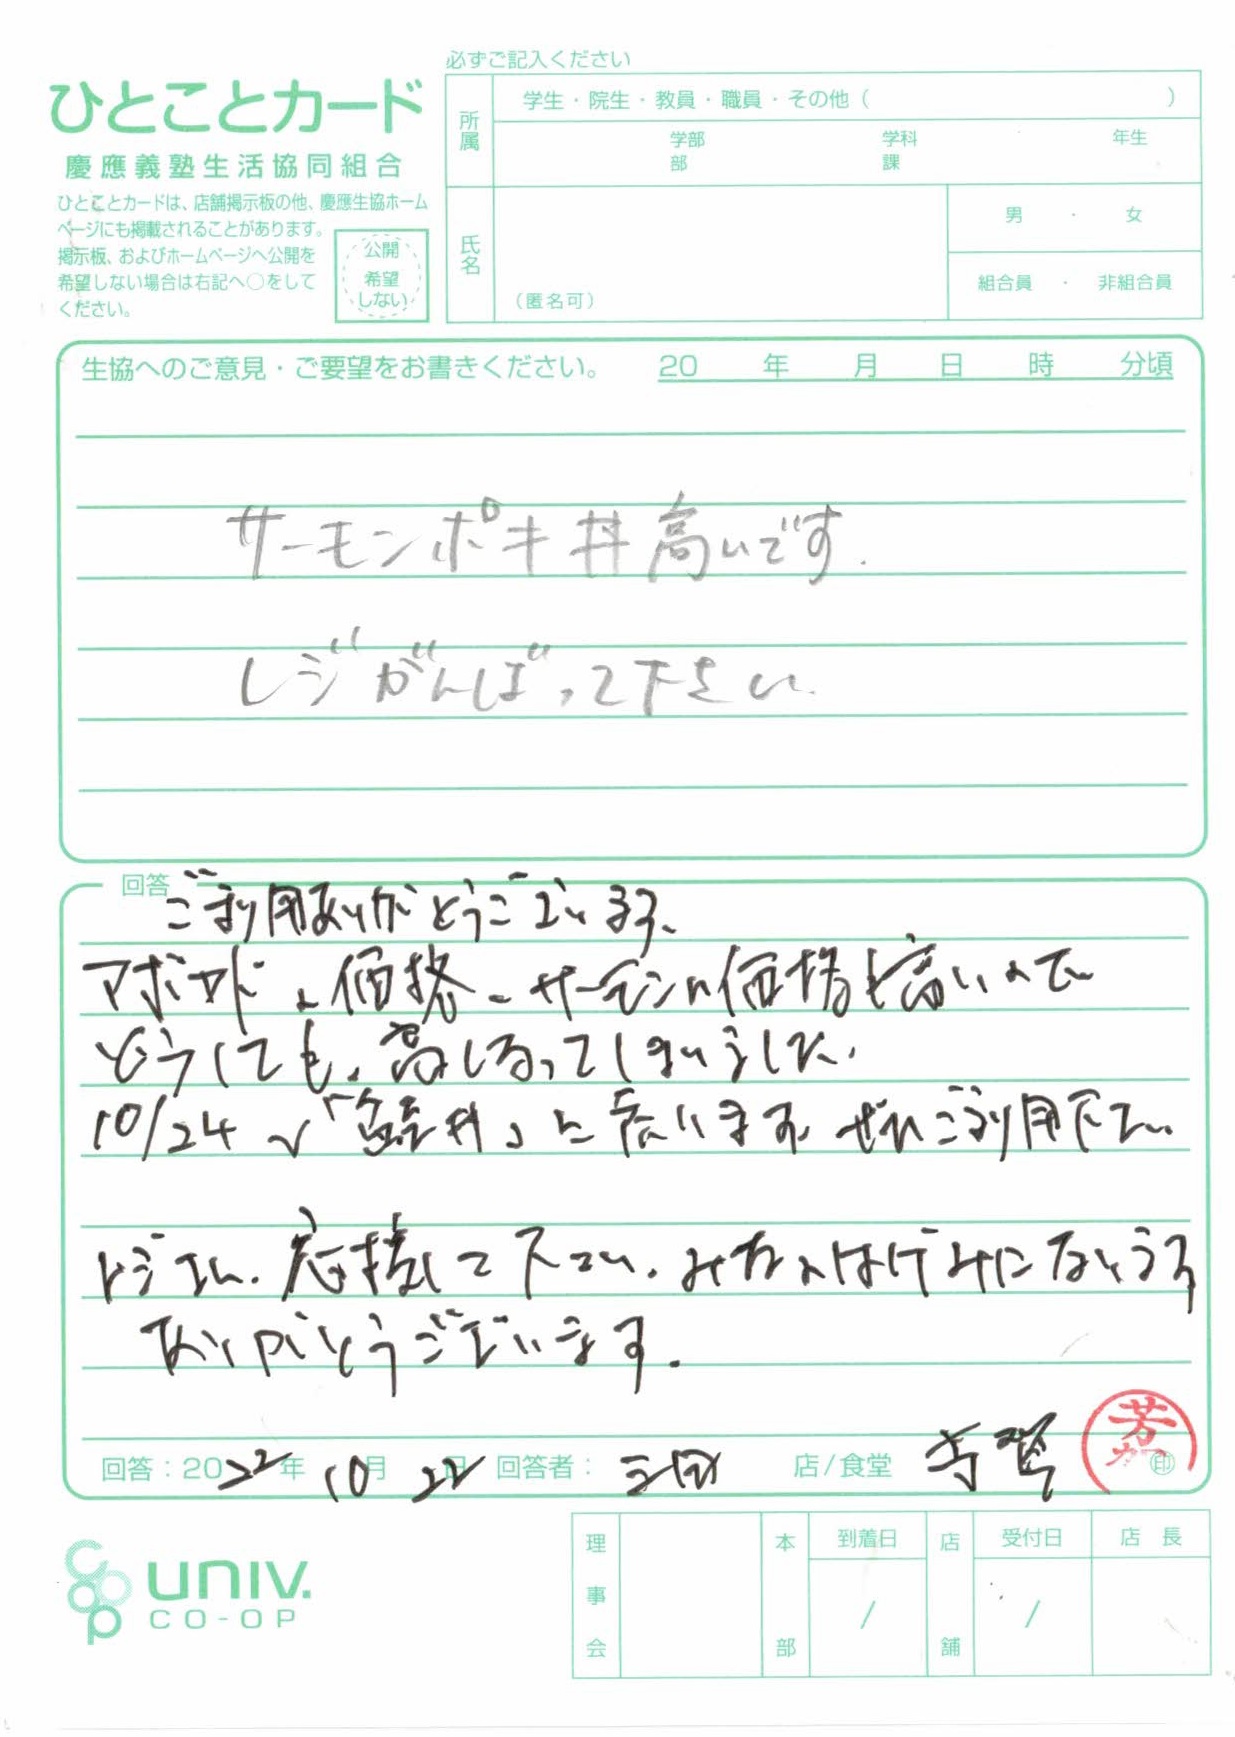 必ずご記入ください
ひとことカード
慶應義塾生活協同組合
ひとことカードは、店舗掲示板の他、慶應生協ホーム
ページにも掲載されることがあります。
掲示板、およびホームページへ公開を
希望しない場合は右記へ○をして
ください。
公開
希望
しない
所属
学生・院生・教員・職員・その他（　　　）
学部 学科 年生
部 課
氏名
（匿名可）
男 ・ 女
組合員 ・ 非組合員
生協へのご意見・ご要望をお書きください。 20 年 月 日 時 分頃
サーモンポキ丼高いです.
レジがんばって下さい.
回答
ご利用ありがとうございます、
アボカドの価格、サーモンの価格も高いので
どうしても、高くなってしまいました.
10/24 「丼」に ます ぜひご利用下さい
レジさん.応援して下さい.みなのはげみになります
ありがとうございます.
回答：2022年 10月 22日 回答者： 三田 店/食堂
芳
印
UNIV.
CO-OP
co op
理事会 本部 到着日 店舗 受付日 店長
/ /